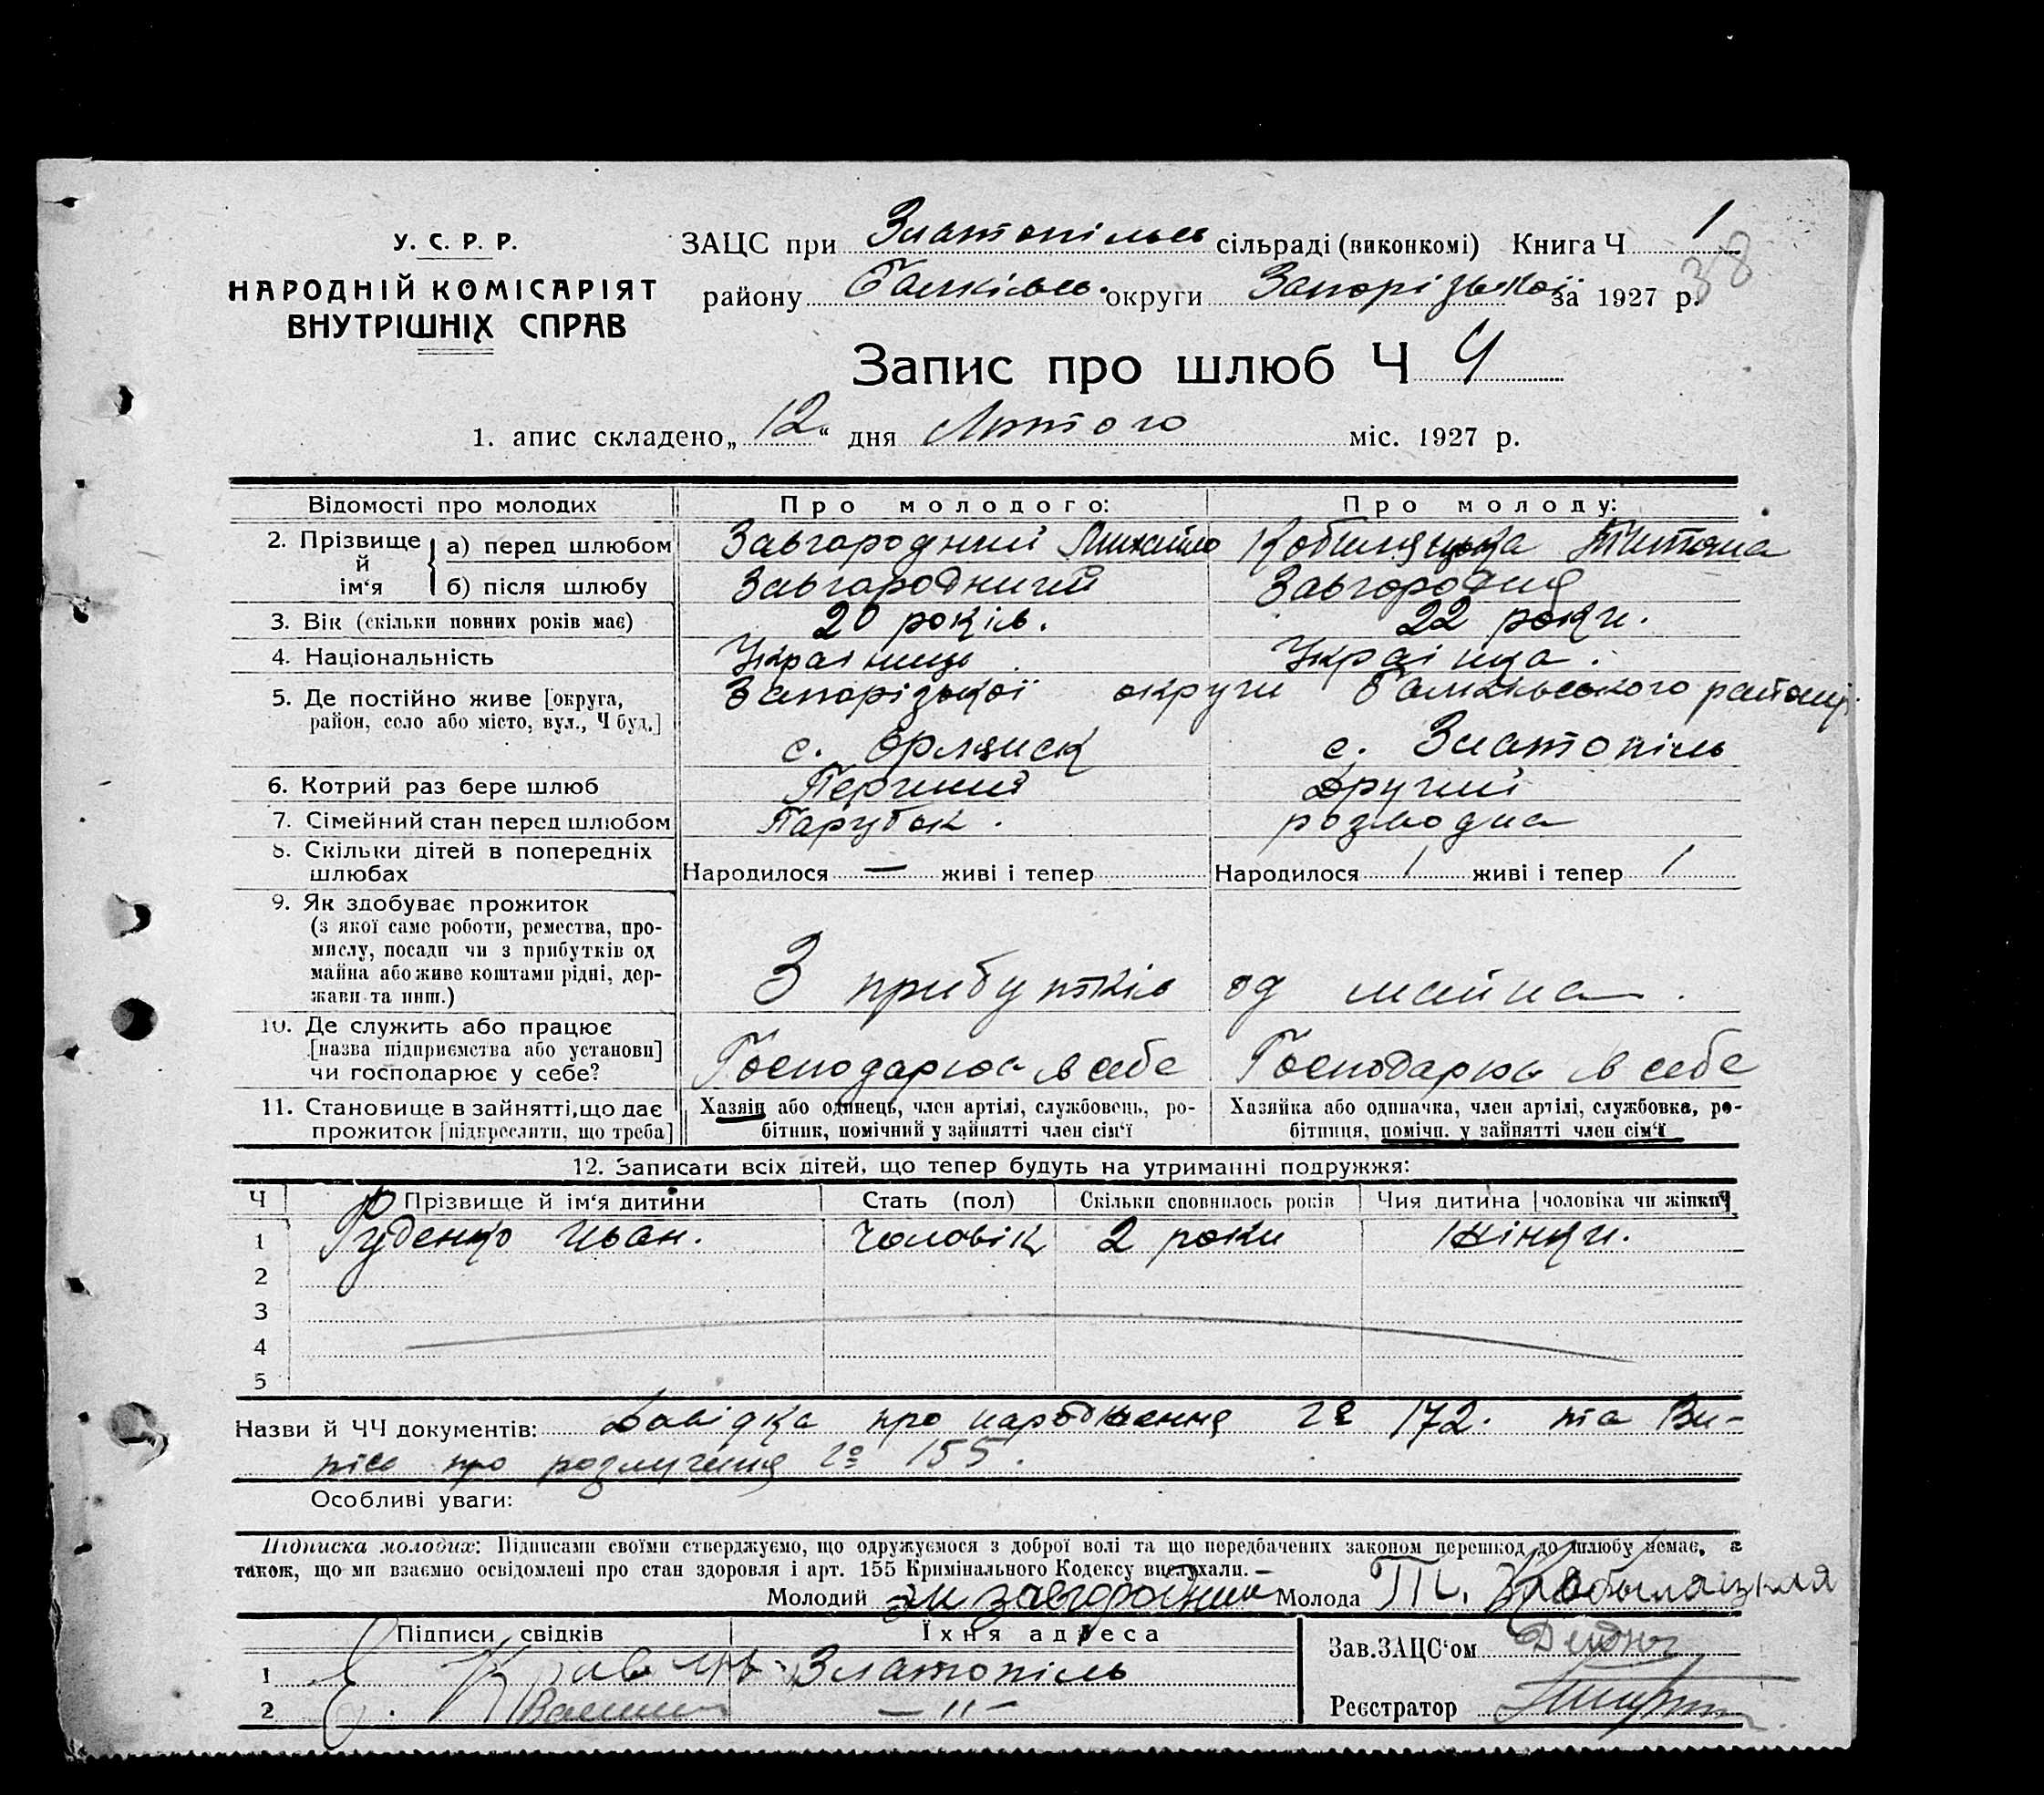 У. С. Р. Р.
НАРОДНІЙ КОМІСАРІЯТ
ВНУТРІШНІХ СПРАВ
ЗАЦС при Златопільсь сільраді (виконкомі) Книга Ч 1
38
району Балківсь. округи Запорізької за 1927 р.
Запис про шлюб Ч 4
1. апис складено „ 12 “ дня Лютого міс. 1927 р.
Відомості про молодих Про молодого: Про молоду:
2. Прізвище й ім‘я
а) перед шлюбом Завгородний Михайло Кобиляцька Титяна
б) після шлюбу Завгородний Завгородня
3. Вік (скільки повних років має) 20 років. 22 роки.
4. Національність Українець. Українка.
5. Де постійно живе [округа, Запорізької округи Балківського району
район, село або місто, вул., Ч буд.]
с. Орлянск с. Златопіль
6. Котрий раз бере шлюб Перший Другий
7. Сімейний стан перед шлюбом Парубок. розводна
8. Скільки дітей в попередніх
шлюбах Народилося — живі і тепер Народилося 1 живі і тепер 1
9. Як здобуває прожиток
(з якої саме роботи, ремества, про-
мислу, посади чи з прибутків од
майна або живе коштами рідні, дер-
жави та инш.) З прибутків од майна.
10. Де служить або працює
[назва підприємства або установи]
чи господарює у себе? Господарює в себе Господарює в себе
11. Становище в зайнятті, що дає Хазяїн або одинець, член артілі, службовець, ро- Хазяйка або одиначка, член артілі, службовка, ро-
прожиток [підкреслити, що треба] бітник, помічний у зайнятті член сім‘ї бітниця, помічн. у зайнятті член сім‘ї
12. Записати всіх дітей, що тепер будуть на утриманні подружжя:
Ч Прізвище й ім‘я дитини Стать (пол) Скільки сповнилось років Чия дитина [чоловіка чи жінки]
1 Руденко Иван. Чоловік 2 роки Жінки.
2
3
4
5
Назви й ЧЧ документів: Довідка про народження № 172. та Ви-
піс про розлучення № 155.
Особливі уваги:
Підписка молодих: Підписами своїми стверджуємо, що одружуємося з доброї волі та що передбачених законом перешкод до шлюбу немає, а
також, що ми взаємно освідомлені про стан здоровля і арт. 155 Кримінального Кодексу вислухали. —
Молодий Завгородний Молода Т. Кобыляцкая
Підписи свідків Їхня адреса Зав. ЗАЦС‘ом
1 Златопіль
2 — " — Реєстратор